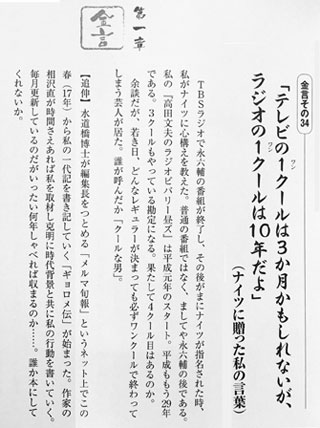 第一章
金言
金言その34
「テレビの1クールは3か月かもしれないが、
ラジオの1クールは10年だよ」
(ナイツに贈った私の言葉)
TBSラジオで永六輔の番組が終了し、その後がまにナイツが指名された時、
私がナイツに心構えを教えた。普通の番組ではなく、ましてや永六輔の後である。
私の『高田文夫のラジオビバリー昼ズ』は平成元年のスタート。平成ももう29年
である。3クールもやっている勘定になる。果たして4クール目はあるのか。
余談だが、若き日、どんなレギュラーが決まっても必ずワンクールで終わって
しまう芸人が居た。誰が呼んだか「クールな男」。
【追伸】水道橋博士が編集長をつとめる「メルマ旬報」というネット上でこの
春(17年)から私の一代記を書き記していく「ギョロメ伝」が始まった。作家の
相沢直が時間さえあれば私を取材し克明に時代背景と共に私の行動を書いていく。
毎月更新しているのだがいったい何年しゃべれば収まるのか……。誰か本にして
くれないか。